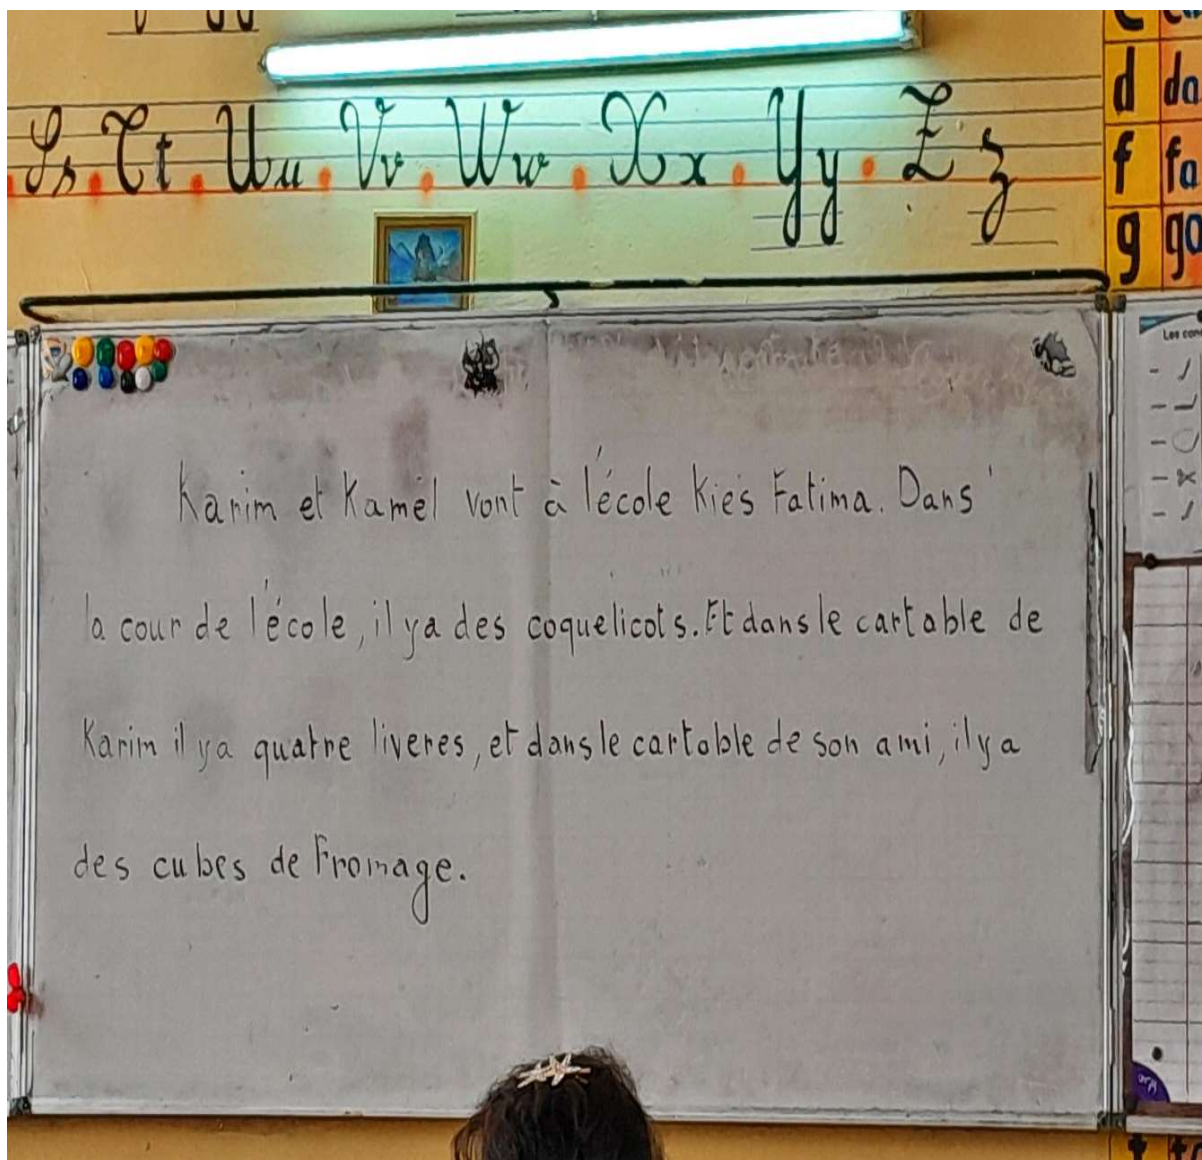 Ss . Tt . Uu . Vv . Ww . Xx . Yy . Zz
d da
f fa
g ga
Karim et Kamel vont à l'école Kies Fatima. Dans
la cour de l'école, il y a des coquelicots. Et dans le cartable de
Karim il y a quatre liveres, et dans le cartable de son ami, il y a
des cubes de Fromage.